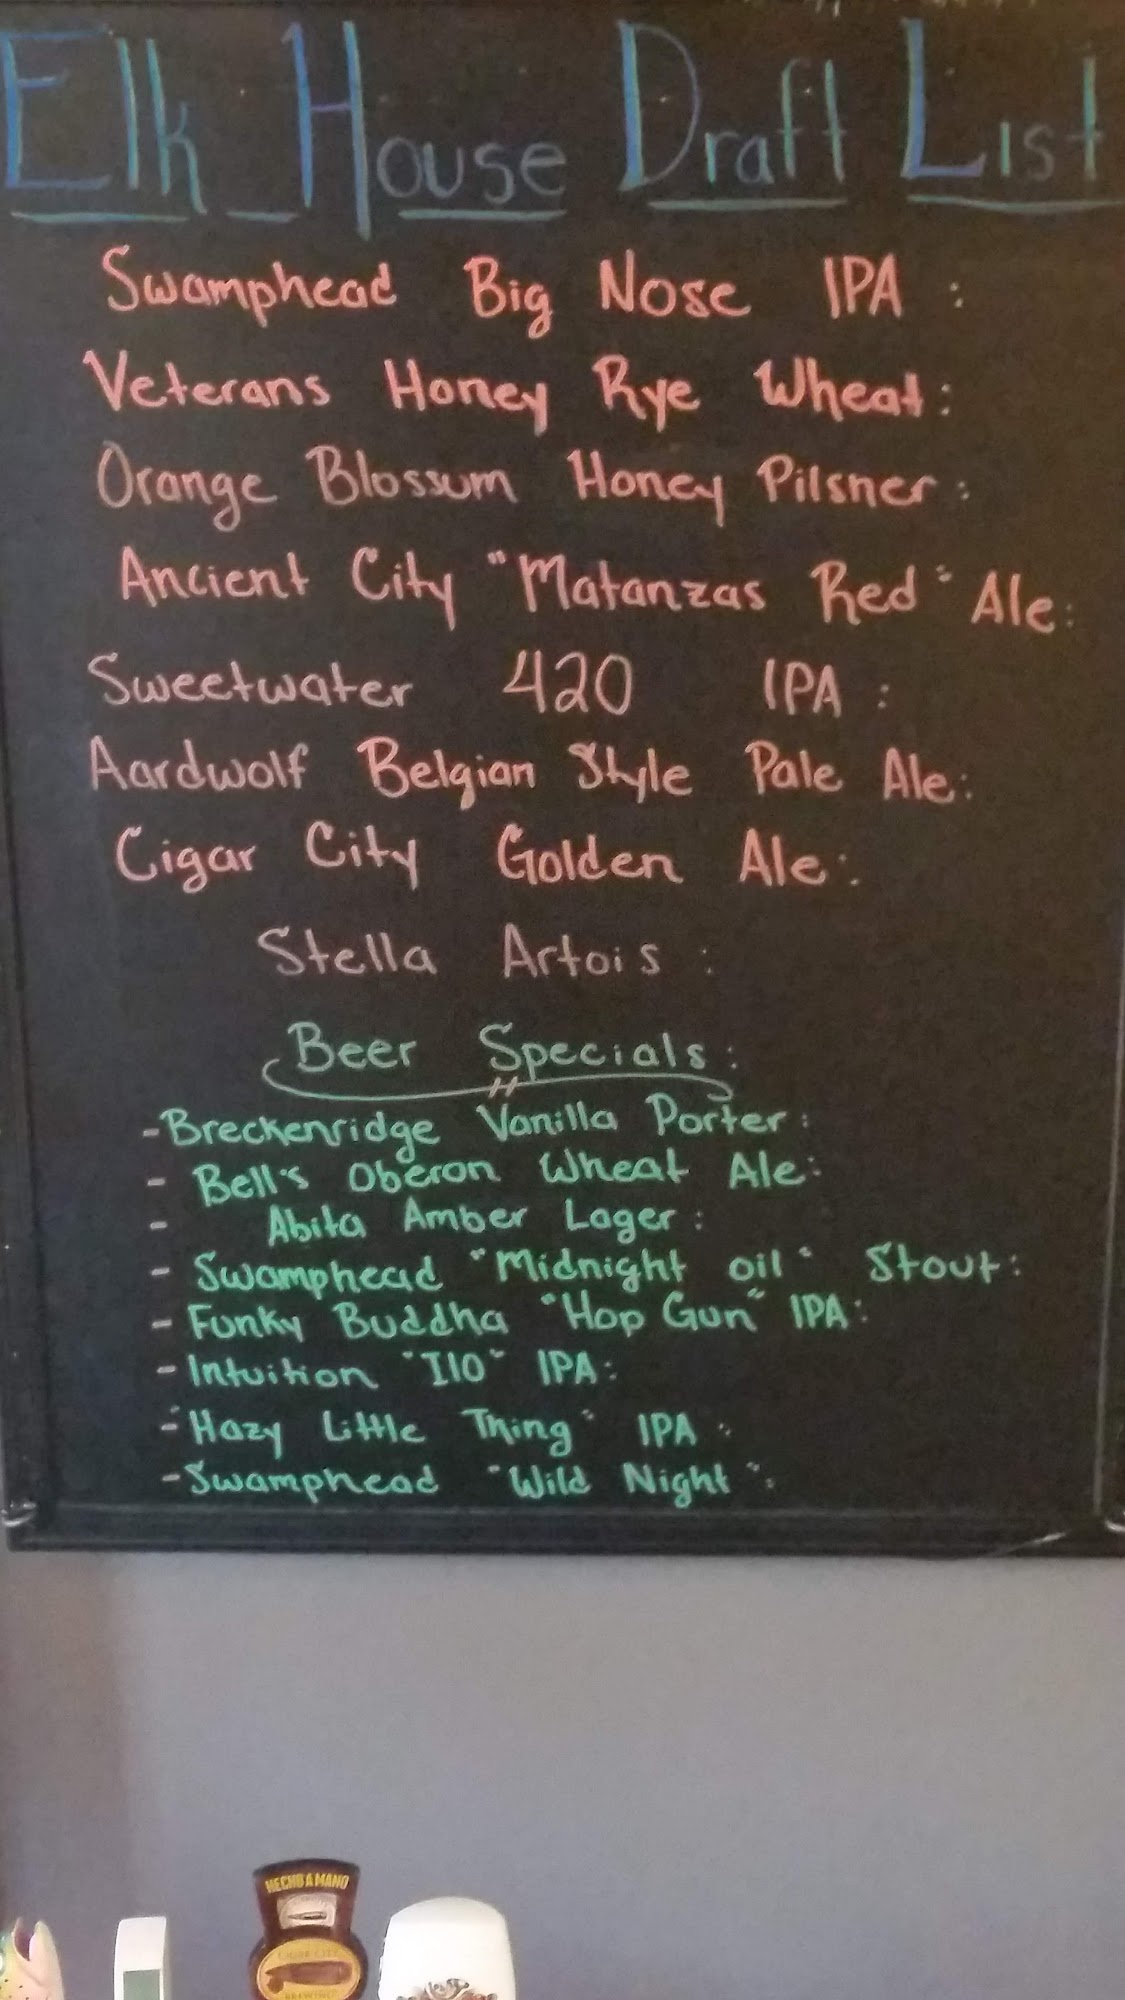 Elk House Draft List
Swamphead Big Nose IPA :
Veterans Honey Rye Wheat:
Orange Blossum Honey Pilsner:
Ancient City "Matanzas Red" Ale:
Sweetwater 420 IPA :
Aardwolf Belgian Style Pale Ale:
Cigar City Golden Ale:
Stella Artois :
Beer Specials:
- Breckenridge Vanilla Porter:
- Bell's Oberon Wheat Ale:
- Abita Amber Lager:
- Swamphead "Midnight oil" Stout:
- Funky Buddha "Hop Gun" IPA:
- Intuition "I10" IPA:
- "Hazy Little Thing" IPA :
- Swamphead "Wild Night":
HECHO A MANO
CIGAR CITY
BREWING